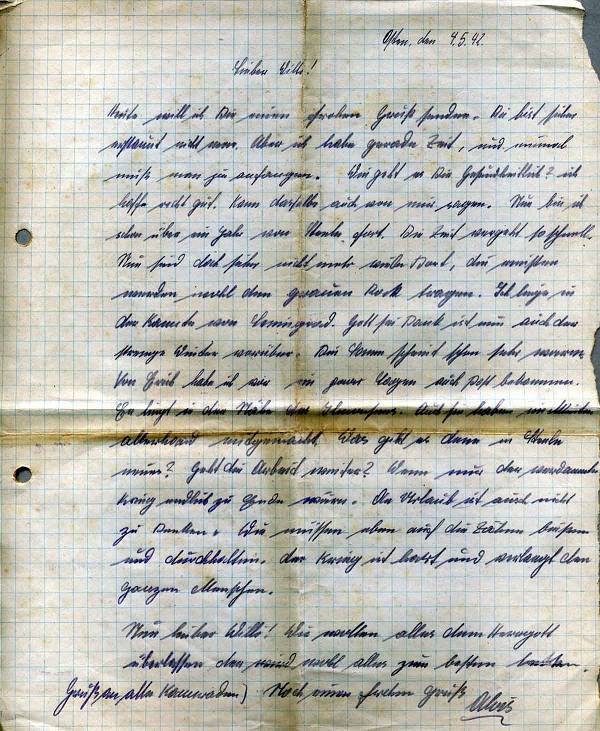 Osten, den 4.5.42.
Lieber Willi!
Heute will ich Dir einen frohen Gruß senden. Du bist sicher
erstaunt nicht wahr. Aber ich habe gerade Zeit, und einmal
muß man ja anfangen. Wie geht es Dir Gesundheitlich? ich
hoffe recht gut. Kann dasselbe auch von mir sagen. Nun bin ich
schon über ein Jahr von fort. Die Zeit vergeht so schnell.
Nun sind doch sicher nicht mehr viele Dort, die meisten
werden wohl den grauen Rock tragen. Ich liege in
der von Leningrad. Gott sei Dank ist nun auch der
strenge Winter vorüber. Die Sonne scheint schon sehr warm.
Von Erich habe ich vor ein paar Tagen auch Post bekommen.
Er liegt in der Nähe des Ilmensees. Auch sie haben im Winter
allerhand mitgemacht. Was gibt es denn in
neues? Geht die Arbeit weiter? Wenn nur der verdammte
Krieg endlich zu Ende wäre. An Urlaub ist auch nicht
zu denken. Wir müssen eben auf die Zähne beissen
und durchhalten. Der Krieg ist hart und verlangt den
ganzen Menschen.
Nun lieber Willi! Wir wollen alles dem Herrgott
überlassen der wird wohl alles zum besten
Gruß an alle Kameraden) Noch einen frohen Gruß
Alois